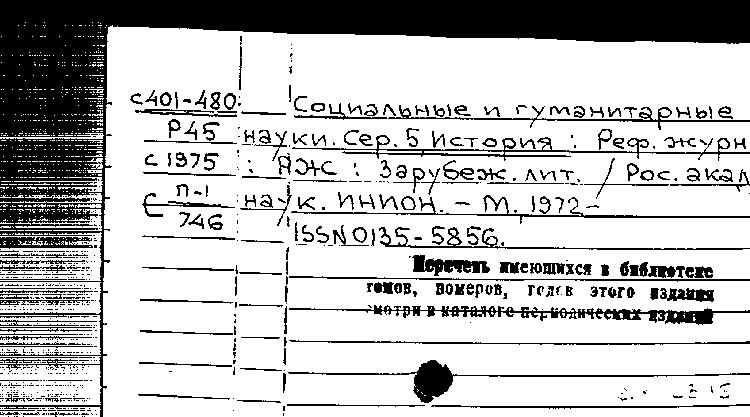 с401-480 Социальные и гуманитарные
Р45 науки. Сер. 5, История : Реф. журн
с 1975 : РЖ : Зарубеж. лит. / Рос. акад
П-1 наук. ИНИОН. – М., 1972–
746 ISSN 0135-5856.
Перечень имеющихся в библиотеке
томов, номеров, годов этого издания
смотри в каталоге периодических изданий